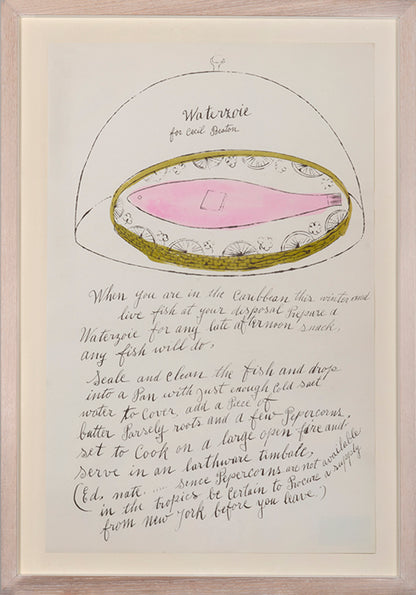 Waterzoie
for Cecil Beaton
When you are in the Caribbean this winter and
live fish at your disposal Prepare a
Waterzoie for any late afternoon snack,
any fish will do.
Scale and clean the fish and drop
into a Pan with just enough Cold salt
water to Cover, add a Piece of
butter Parsely roots and a few Pepercorns,
set to Cook on a large open fire and
serve in an earthware timbale,
(Ed. note. .... sence Pepercorns are not available
in the tropics be Certain to Procure a supply
from New York before you leave.)